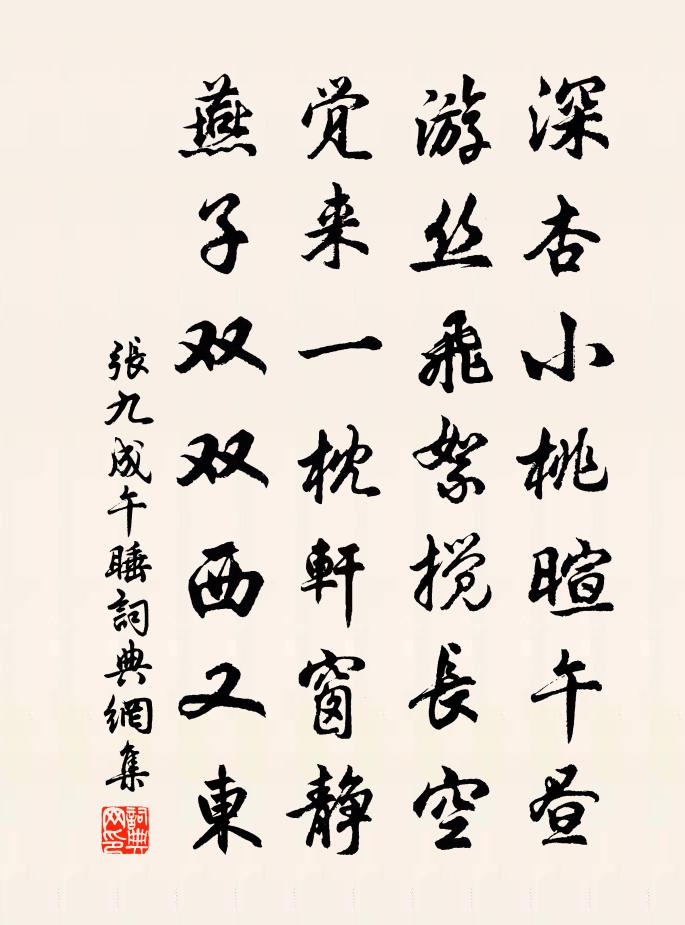 深杏小桃暄午昼
游丝飛絮搅長空
觉来一枕軒窗静
燕子双双西又東
張九成午睡詞典網集
詞典网印